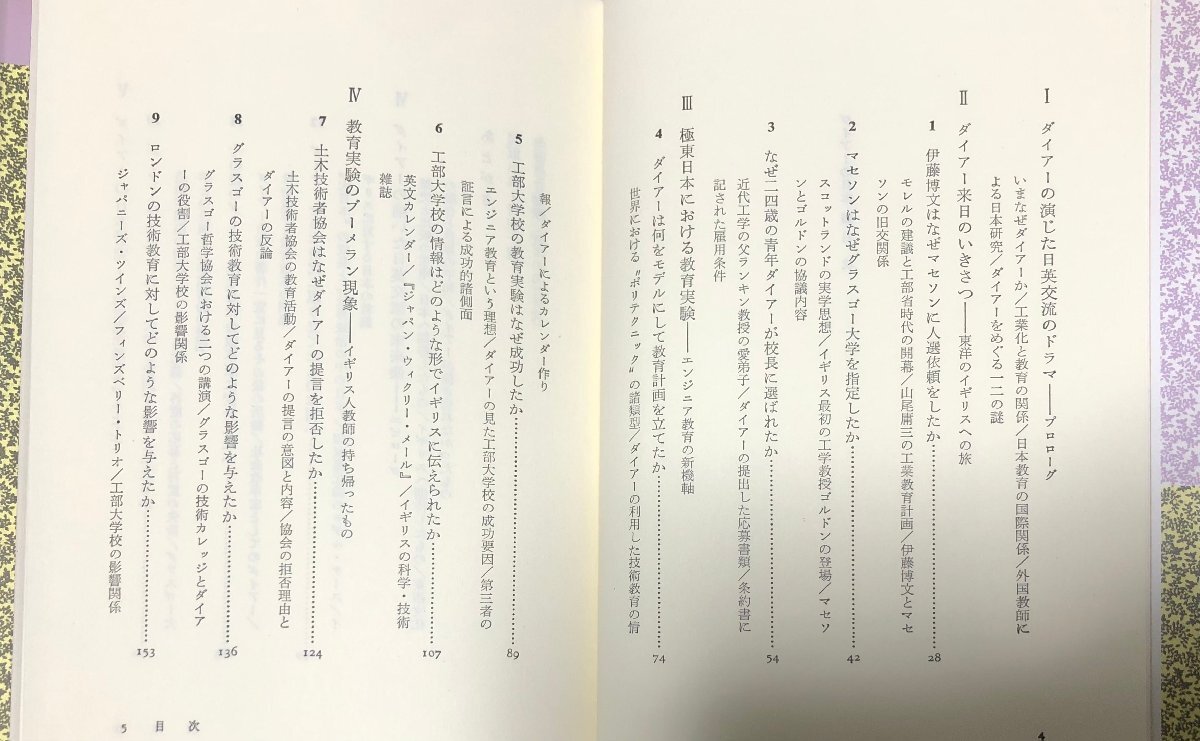 Ⅰ ダイアーの演じた日英交流のドラマ——プロローグ
いまなぜダイアーか/工業化と教育の関係/日本教育の国際関係/外国教師に
よる日本研究/ダイアーをめぐる一二の謎
Ⅱ ダイアー来日のいきさつ——東洋のイギリスへの旅
1 伊藤博文はなぜマセソンに人選依頼をしたか…………28
モレルの建議と工部省時代の開幕/山尾庸三の工業教育計画/伊藤博文とマセ
ソンの旧交関係
2 マセソンはなぜグラスゴー大学を指定したか…………42
スコットランドの実学思想/イギリス最初の工学教授ゴルドンの登場/マセソ
ンとゴルドンの協議内容
3 なぜ二四歳の青年ダイアーが校長に選ばれたか…………54
近代工学の父ランキン教授の愛弟子/ダイアーの提出した応募書類/条約書に
記された雇用条件
Ⅲ 極東日本における教育実験——エンジニア教育の新機軸
4 ダイアーは何をモデルにして教育計画を立てたか…………74
世界における〝ポリテクニック〟の諸類型/ダイアーの利用した技術教育の情
4
報/ダイアーによるカレンダー作り
5 工部大学校の教育実験はなぜ成功したか…………89
エンジニア教育という理想/ダイアーの見た工部大学校の成功要因/第三者の
証言による成功的諸側面
6 工部大学校の情報はどのような形でイギリスに伝えられたか…………107
英文カレンダー/『ジャパン・ウィクリー・メール』/イギリスの科学・技術
雑誌
Ⅳ 教育実験のブーメラン現象——イギリス人教師の持ち帰ったもの
7 土木技術者協会はなぜダイアーの提言を拒否したか…………124
土木技術者協会の教育活動/ダイアーの提言の意図と内容/協会の拒否理由と
ダイアーの反論
8 グラスゴーの技術教育に対してどのような影響を与えたか…………136
グラスゴー哲学協会における二つの講演/グラスゴーの技術カレッジとダイア
ーの役割/工部大学校の影響関係
9 ロンドンの技術教育に対してどのような影響を与えたか…………153
ジャパニーズ・ツインズ/フィンズベリー・トリオ/工部大学校の影響関係
5 目 次